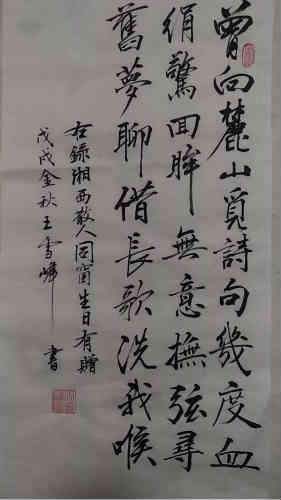 曾向麓山覓詩句幾度血
絹驚回眸無意撫弦尋
舊夢聊借長歌洗我喉
右錄湘西散人同窗生日有贈
戊戌金秋王雪峰書